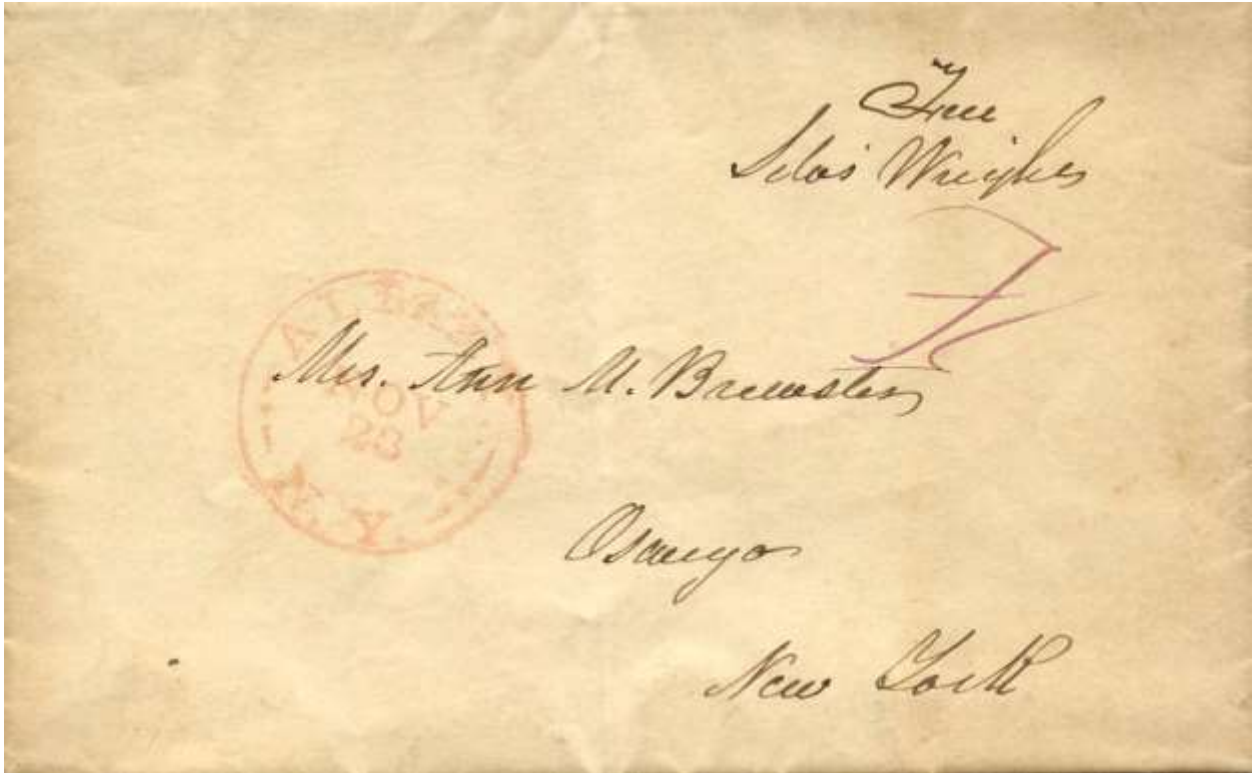 Free
Silas Wright
ALBANY
NOV
23
N.Y.
Mrs. Ann M. Brewster
Oswego
New York